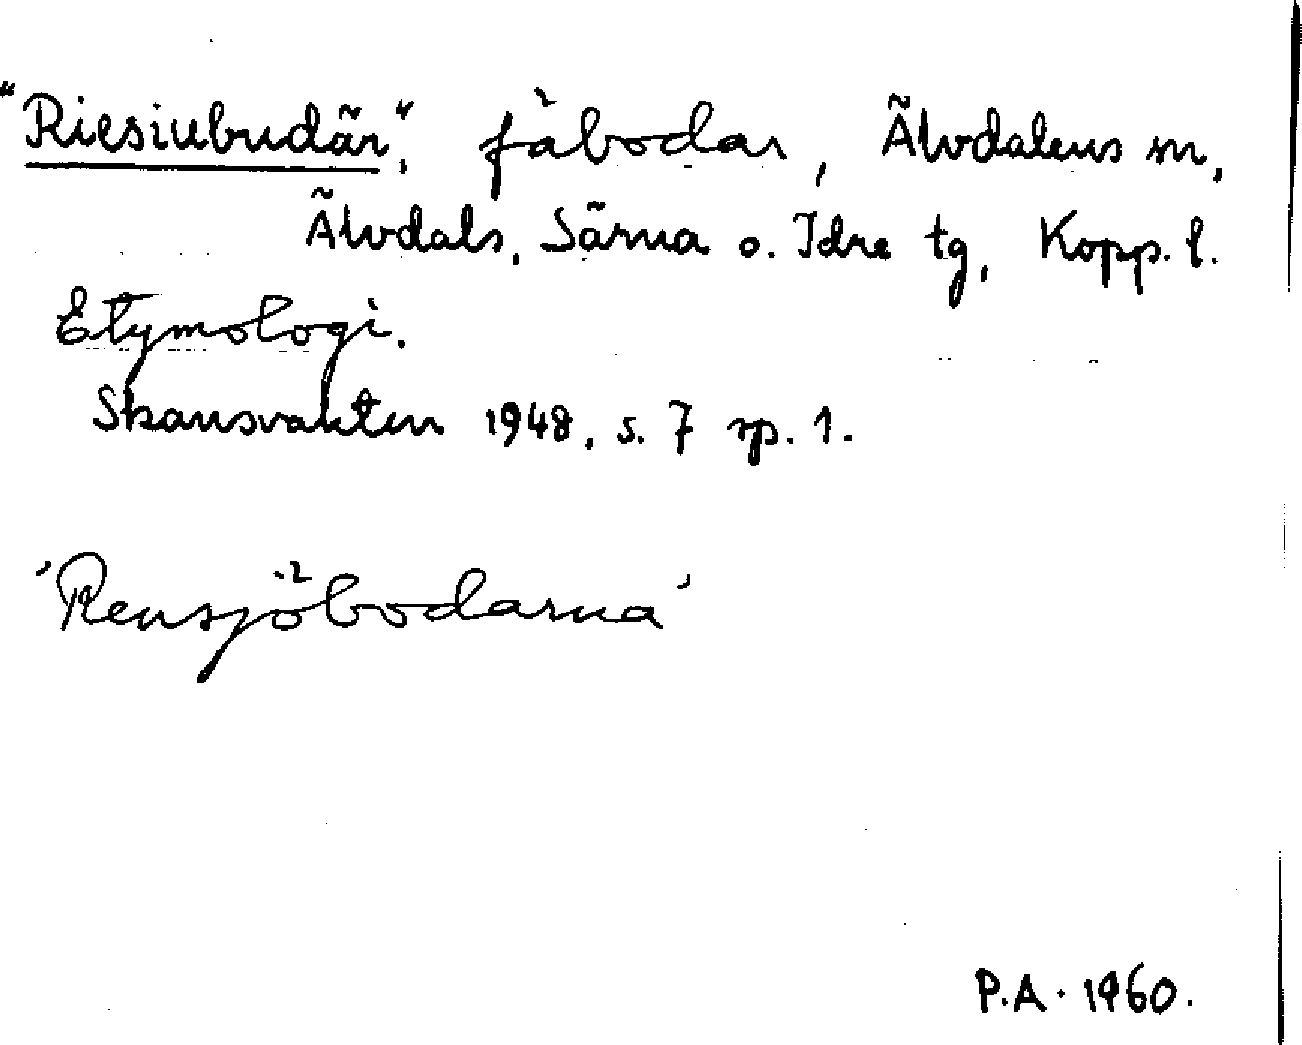 "Riesiubudär", fäbodar, Älvdalens sn,
Älvdals, Särna o. Idre tg, Kopp. l.
Etymologi.
Skansvakten 1948, s. 7 sp. 1.
'Rensjöbodarna'
P.A. 1960.